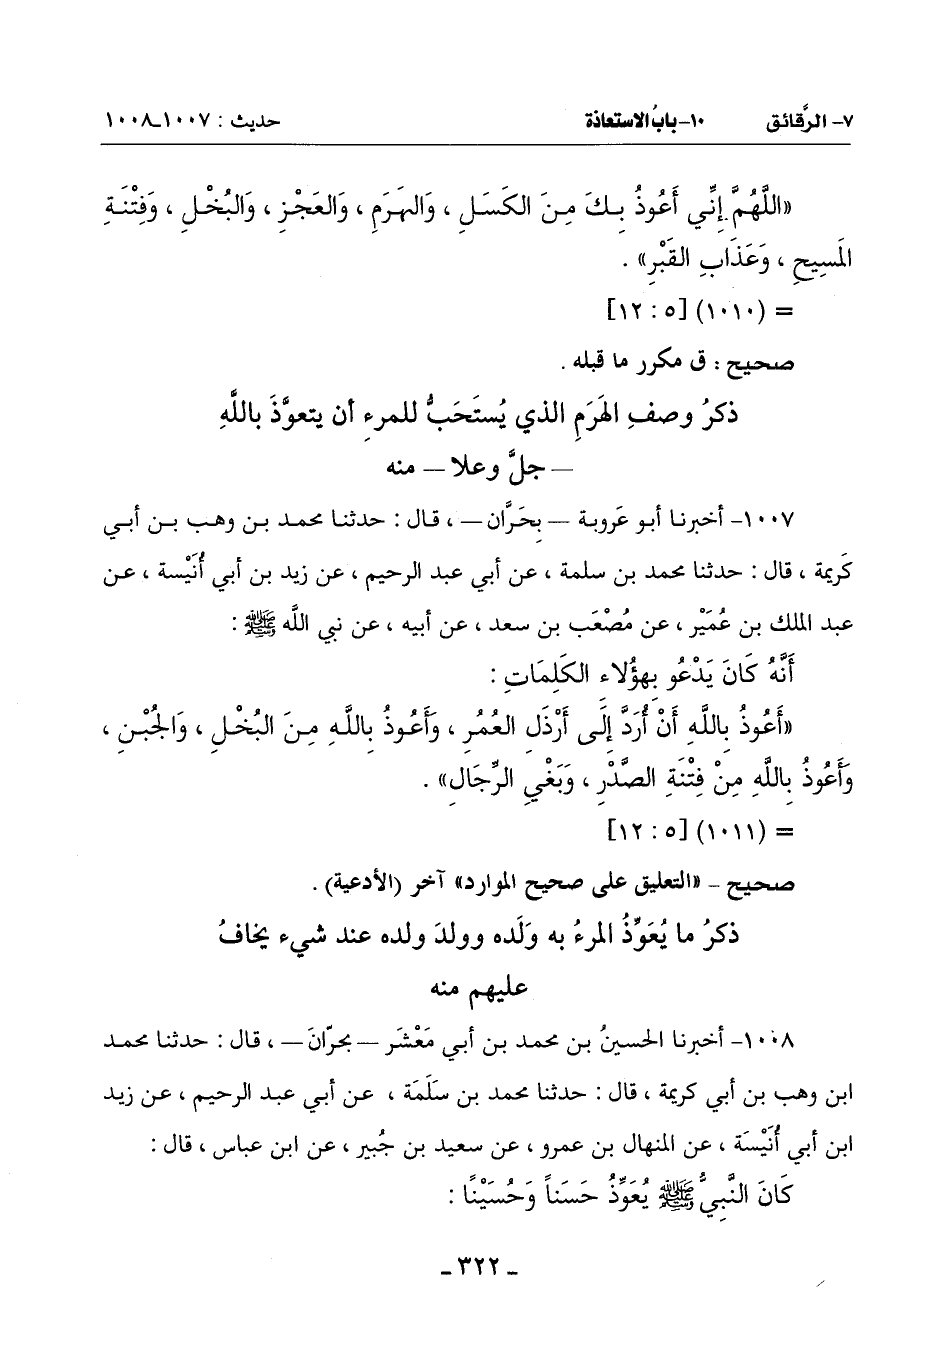 ٧- الرَّقائق ١٠-بابُ الاستعاذة حديث : ١٠٠٧-١٠٠٨
«اللَّهُمَّ إِنِّي أَعُوذُ بِكَ مِنَ الكَسَلِ ، وَالهَرَمِ ، وَالعَجْزِ ، وَالبُخْلِ ، وَفِتْنَةِ
المَسِيحِ ، وَعَذَابِ القَبْرِ» .
= (١٠١٠) [٥ : ١٢]
صحيح : ق مكرر ما قبله .
ذكرُ وصفِ الهَرَمِ الذي يُستَحَبُّ للمرءِ أن يتعوَّذَ باللَّهِ
— جلَّ وعلا — منه
١٠٠٧- أخبرنا أبو عَروبة — بِحَرَّان — ، قال : حدثنا محمد بن وهب بن أبي
كَرِيمة ، قال : حدثنا محمد بن سلمة ، عن أبي عبد الرحيم ، عن زيد بن أبي أُنَيْسة ، عن
عبد الملك بن عُمَيْر ، عن مُصْعَب بن سعد ، عن أبيه ، عن نبي اللَّه ﷺ :
أَنَّهُ كَانَ يَدْعُو بِهؤُلاءِ الكَلِمَاتِ :
«أَعُوذُ بِاللَّهِ أَنْ أُرَدَّ إِلَى أَرْذَلِ العُمُرِ ، وَأَعُوذُ بِاللَّهِ مِنَ البُخْلِ ، وَالجُبْنِ ،
وَأَعُوذُ بِاللَّهِ مِنْ فِتْنَةِ الصَّدْرِ ، وَبَغْيِ الرِّجَالِ» .
= (١٠١١) [٥ : ١٢]
صحيح - «التعليق على صحيح الموارد» آخر (الأدعية) .
ذكرُ ما يُعَوِّذُ المرءُ به وَلَده وولدَ ولده عند شيء يخافُ
عليهم منه
١٠٠٨- أخبرنا الحسينُ بن محمد بن أبي مَعْشَر — بحرّانَ — ، قال : حدثنا محمد
ابن وهب بن أبي كريمة ، قال : حدثنا محمد بن سَلَمَة ، عن أبي عبد الرحيم ، عن زيد
ابن أبي أُنَيْسَة ، عن المنهال بن عمرو ، عن سعيد بن جُبير ، عن ابن عباس ، قال :
كَانَ النَّبِيُّ ﷺ يُعَوِّذُ حَسَناً وَحُسَيْنًا :
- ٣٢٢ -